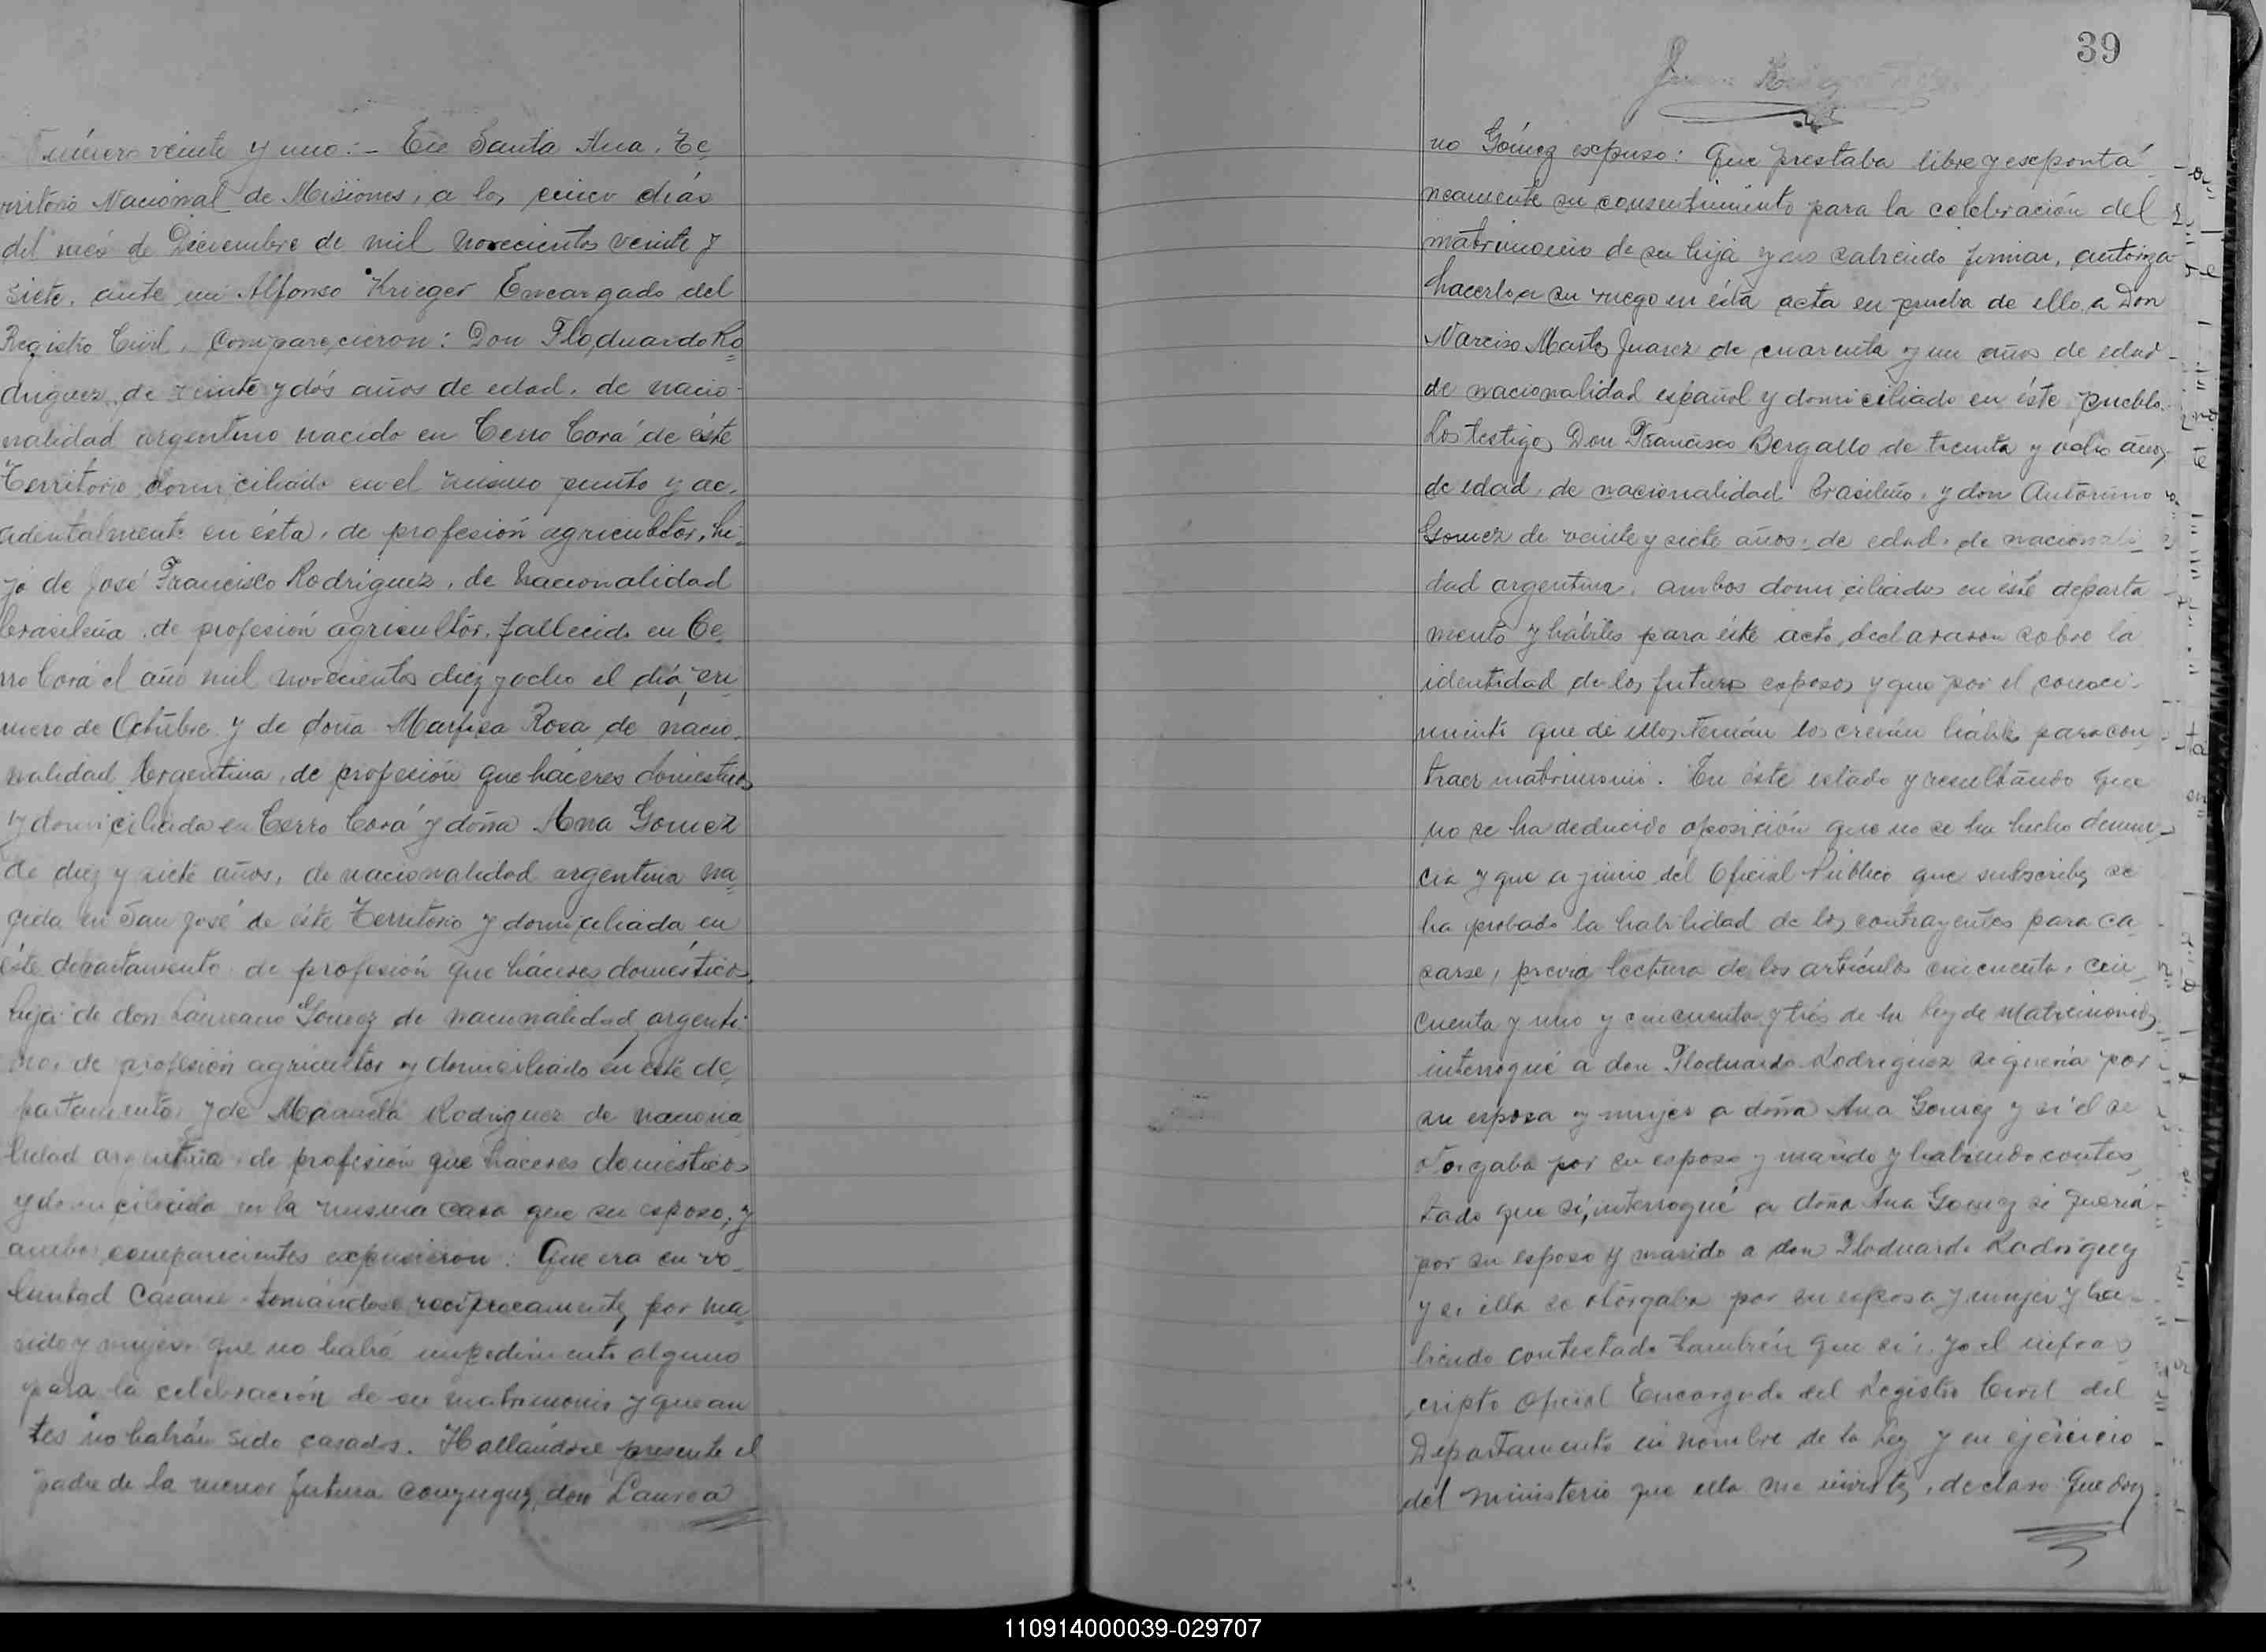 Número veinte y uno:- En Santa Ana, Te
rritorio Nacional de Misiones, a los cinco días
del més de Diciembre de mil novecientos veinte y
siete, ante mi Alfonso Krieger Encargado del
Registro Civil, Comparecieron: Don Floduardo Ro
driguez, de veinte y dós años de edad, de nacio-
nalidad argentino nacido en Cerro Corá de éste
Territorio, domiciliado en el mismo punto y ac
cidentalmente en ésta, de profesión agricultór, hi
jo de José Francisco Rodriguez, de nacionalidad
brasileña, de profesión agricultór, fallecido en Ce
rro Corá el año mil novecientos diez y ocho el día pri
mero de Octubre y de doña Marfisa Rosa de nacio
nalidad Argentina, de profesión que háceres domesticos
y domiciliada en Cerro Corá y doña Ana Gomez
de diez y siete años, de nacionalidad argentina na
cida en San José de éste Territorio y domiciliada en
éste departamento de profesión que háceres domésticos,
hija de don Laureano Gomez de nacionalidad argenti
no, de profesión agricultor y domiciliado en esté de
partamento, y de Manuela Rodriguez de naciona
lidad argentina, de profesión que háceres domésticos
y domiciliada en la misma casa que su esposo; y
ambos comparecientes expusieron: Que era su vo
luntad casarse tomándose recíprocamente por ma
rido y mujer, que no habiá impedimento alguno
para la celebración de su matrimonio y que an
tes no habián sido casados. Hallándose presente el
padre de la menor futura conyugue, don Laurea
39
no Gómez expuso: Que prestaba libre y espontá
neamente su consentimiento para la celebración del
matrimonio de su hija y no sabiendo firmar, autoriza
hacerlo a su ruego en ésta acta en prueba de ello, a Don
Narciso Martos Juarez de cuarenta y un años de edad
de nacionalidad español y domiciliado en éste pueblo.
Los testigos Don Francisco Bergallo de treinta y ocho años
de edad, de nacionalidad brasileño, y don Antonino
Gomez de veinte y siete años, de edad, de nacionali
dad argentina, ambos domiciliados en éste departa
mento y hábiles para éste acto, declararon sobre la
identidad de los futuros esposos y que por el conoci-
miento que de ellos tenián los creián hábiles para con
traer matrimonio. En éste estado y resultando que
no se ha deducido oposición que no se ha hecho denun-
cia y que a juicio del Oficial Público que subscribe, se
ha probado la habilidad de los contrayentes para ca
sarse, previa lectura de los artículos cincuenta, cin
cuenta y uno y cincuenta y trés de la Ley de Matrimonio,
interrogué a don Floduardo Rodriguez si queria por
su esposa y mujer a doña Ana Gomez y si él se
otorgaba por su esposo y marido y habiendo contes
tado que sí, interrogué a doña Ana Gomez si queria
por su esposo y marido a don Floduardo Rodriguez
y si ella se otórgaba por su esposa y mujer y ha-
biendo contestado también que sí; yo el infras
cripto Oficial Encargado del Registro Civil del
Departamento en nombre de la Ley y en ejercicio
del ministerio que ella me inviste, declaro: Que don
110914000039-029707